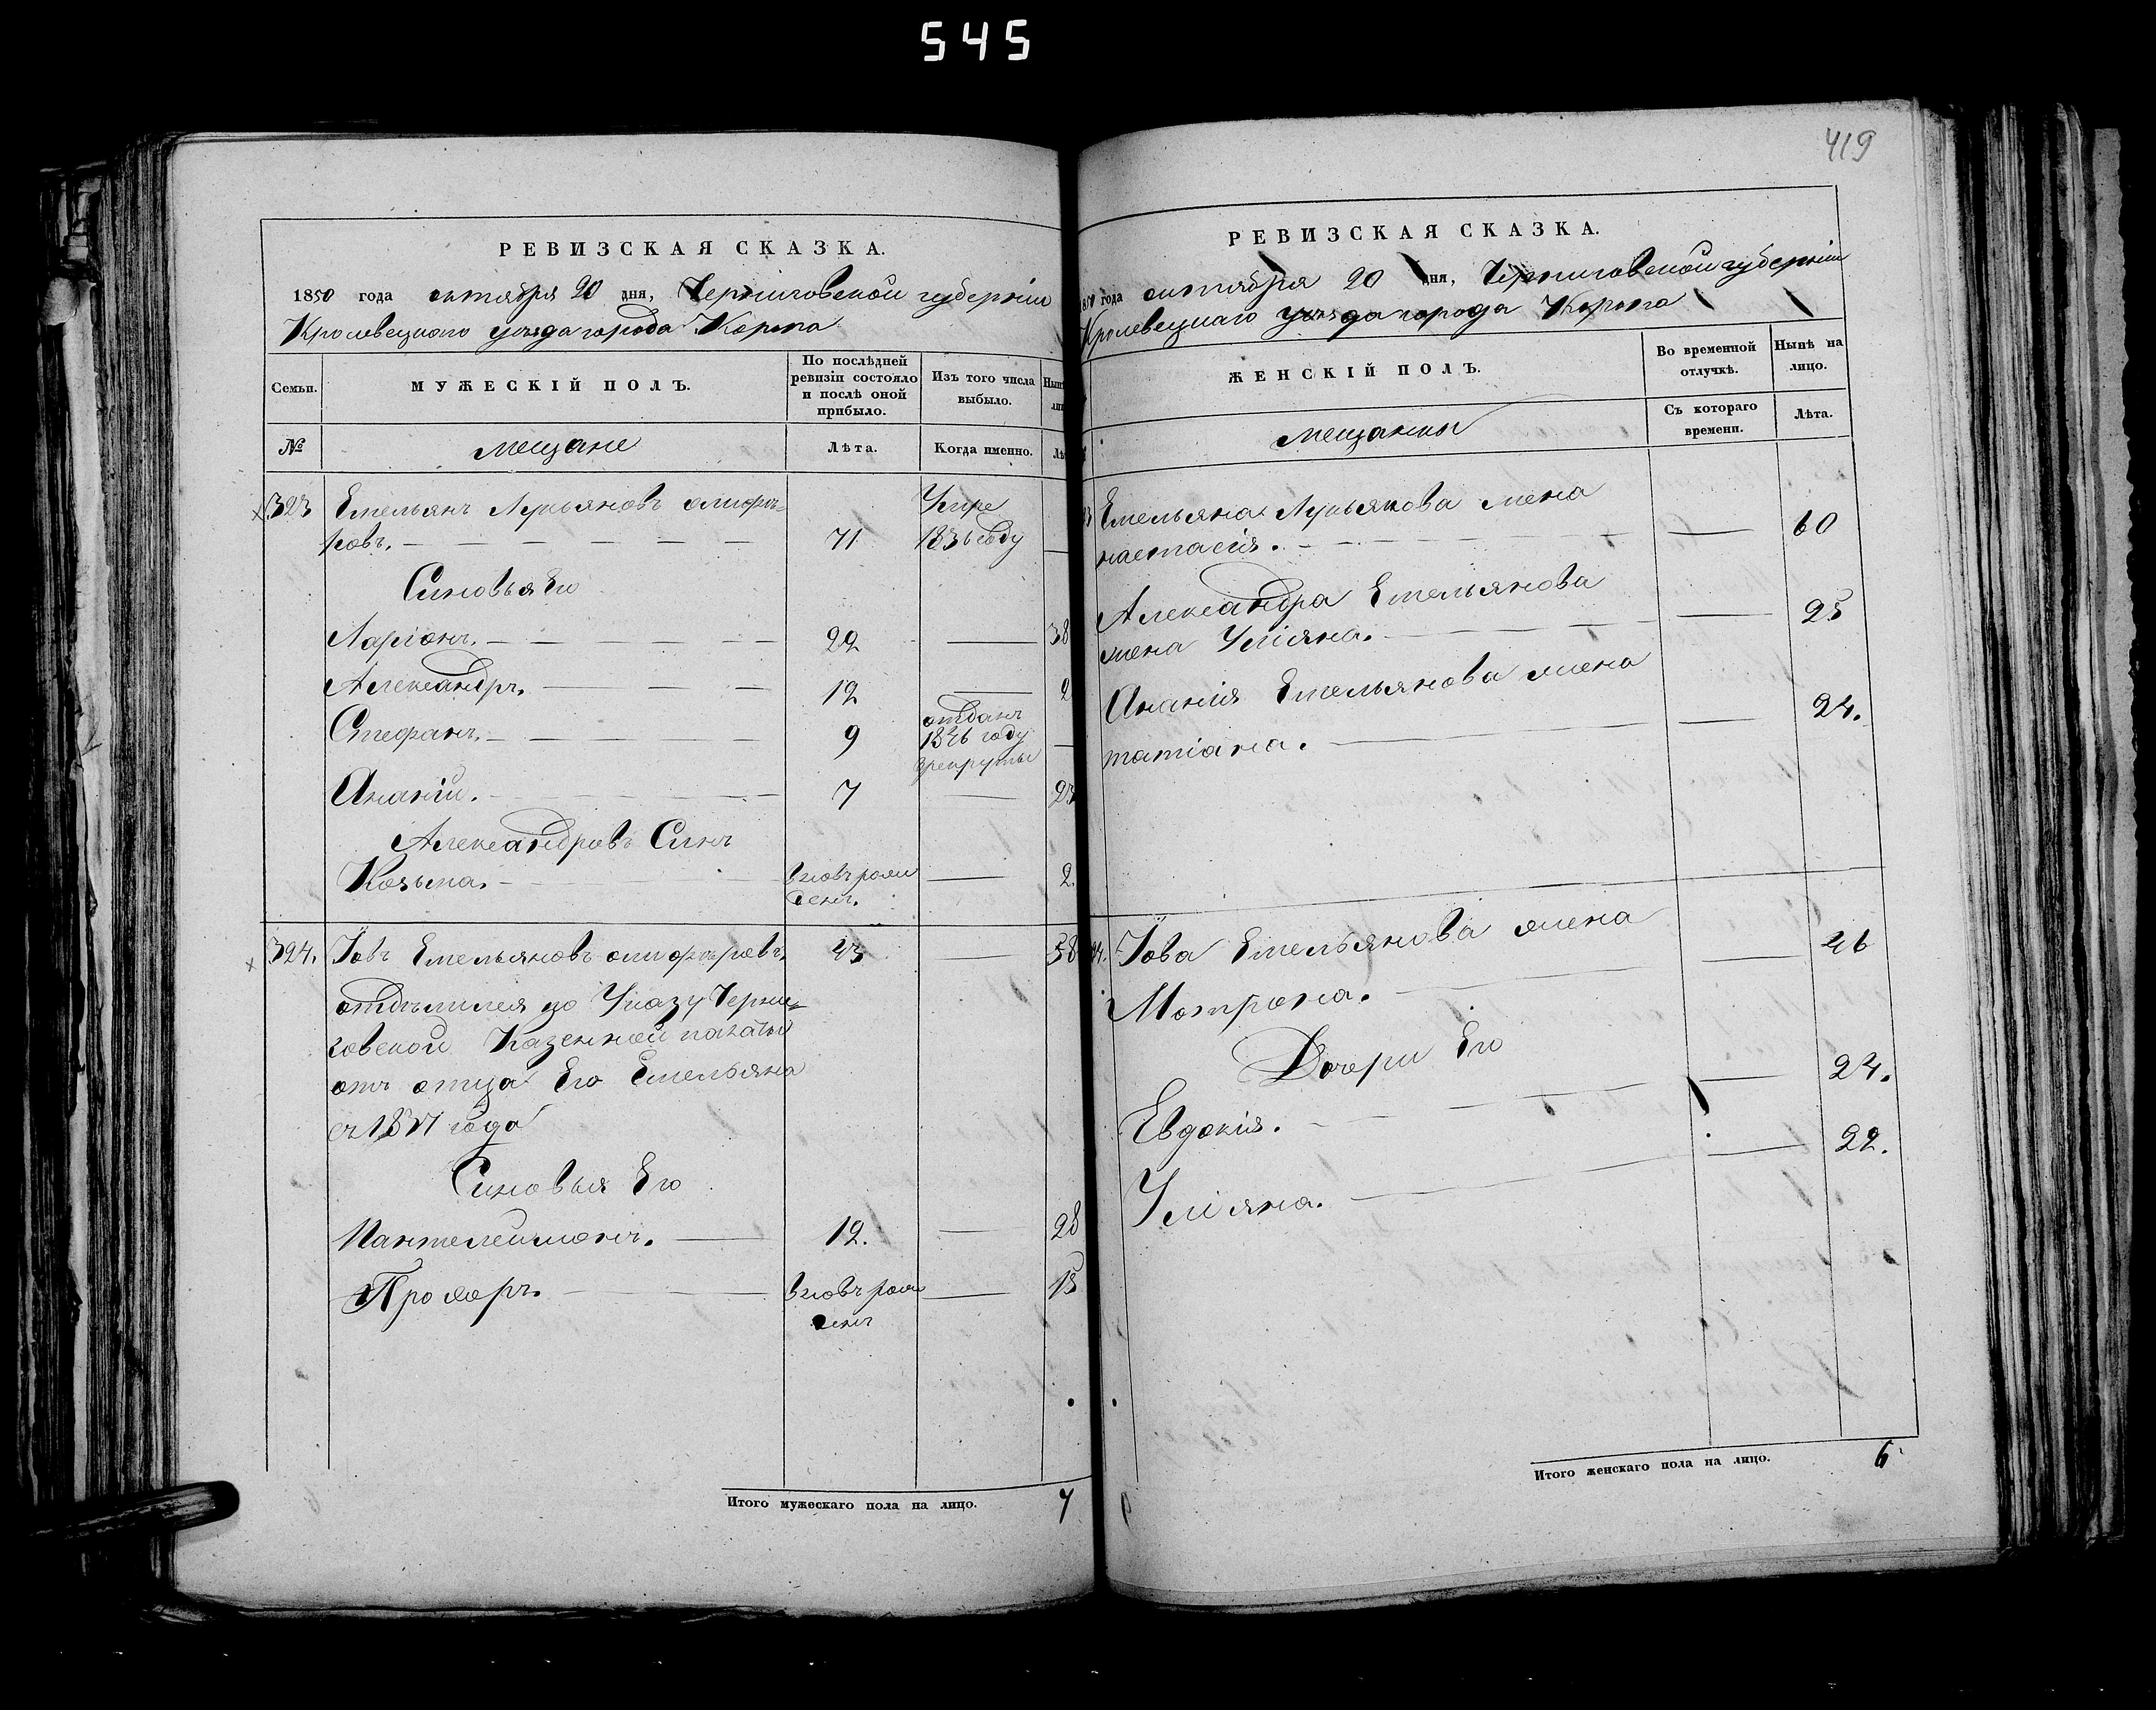 545
419
РЕВИЗСКАЯ СКАЗКА.
1850 года октября 20 дня, Черниговской губерніи
Кролевецкаго уезда города Коропа
Семьи. МУЖЕСКІЙ ПОЛЪ. По послѣдней ревизіи состояло и послѣ оной прибыло. Изъ того числа выбыло.
№ мещане Лѣта. Когда именно.
323 Емельянъ Лукьяновъ
71 1836 году
Синовья Его
Ларіонъ. 22 38
Александръ. 12
Стефанъ. 9 отданъ 1846 году
Ананій. 7 23
Александровъ Синъ
Козьма. вновь рожденъ. 2
324. Іовъ Емельяновъ 43 58
отделился по Указу Черни=
говской Казенной палаты
отъ отца Его Емельяна
съ 1837 года
Синовья Его
Пантелеймонъ. 12. 28
Прохоръ. вновь рожденъ 15
Итого мужескаго пола на лицо. 7
РЕВИЗСКАЯ СКАЗКА.
1850 года октября 20 дня, Черниговской губерніи
Кролевецкаго уезда города Коропа
ЖЕНСКІЙ ПОЛЪ. Во временной отлучкѣ. Нынѣ на лицо.
мещанки Съ котораго времени. Лѣта.
Емельяна Лукьянова жена
настасія. 60
Александра Емельянова
жена Уліяна. 25
Ананія Емельянова жена
татіана. 24.
Іова Емельянова жена
Мотрона. 46
Дочери Его
Евдокія. 24.
Уліяна. 22.
Итого женскаго пола на лицо. 6